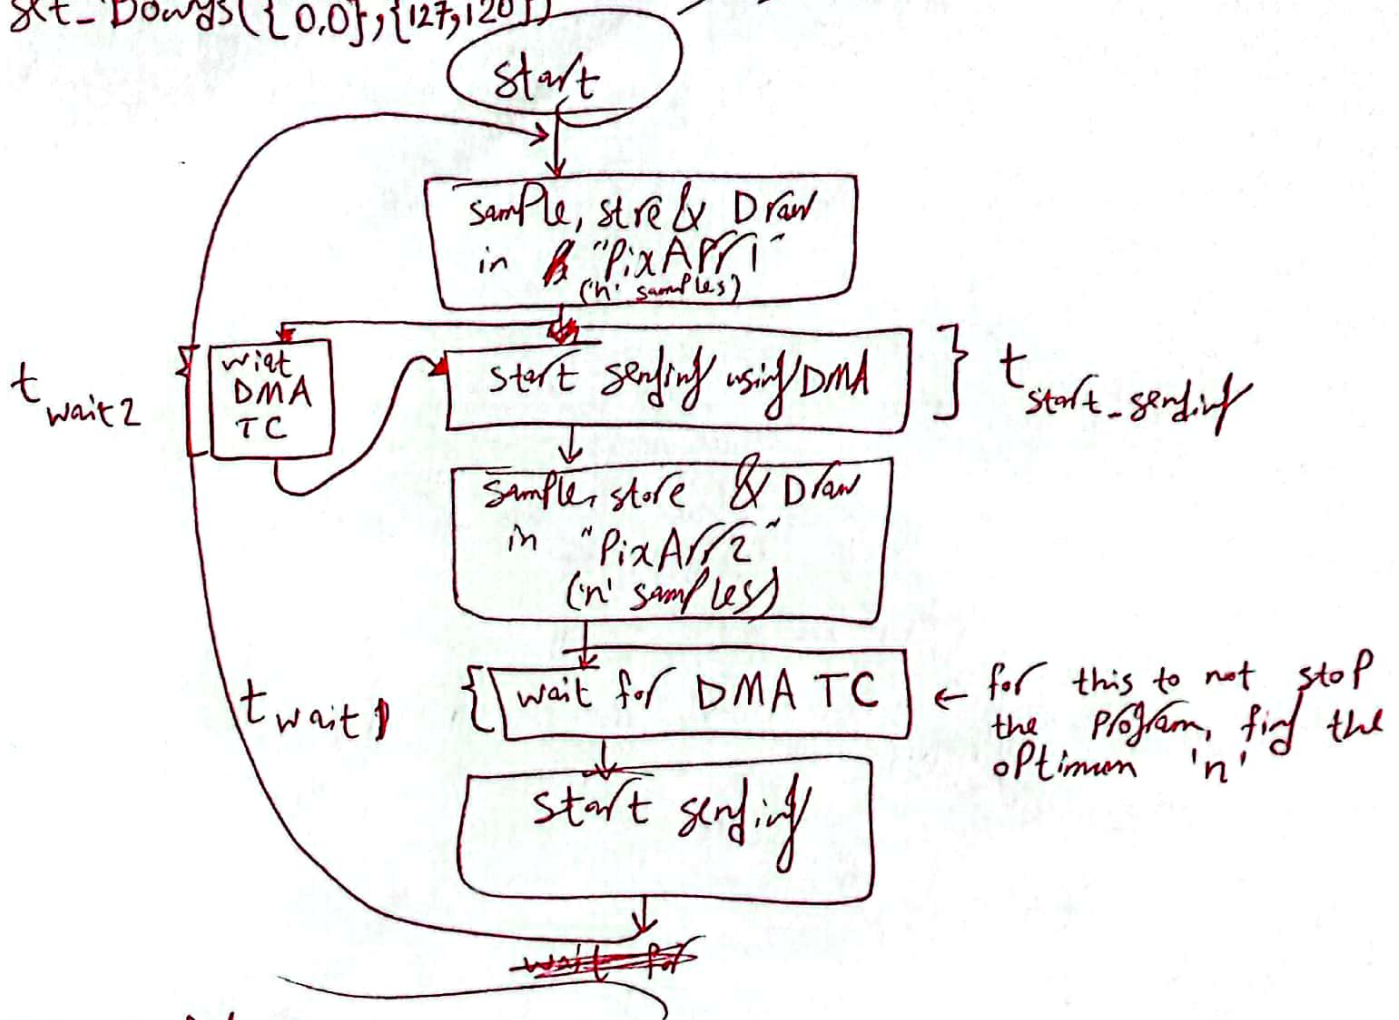 set_Bounds({0,0},{127,120})
start
sample, stre & Draw
in "PixArr1"
('n' samples)
wiat
DMA
TC
t wait2
start sending using DMA
t start_sending
sample, store & Draw
in "PixArr2"
('n' samples)
t wait1
wait for DMA TC
← for this to not stop
the program, find the
optimum 'n'
start sending
wait for